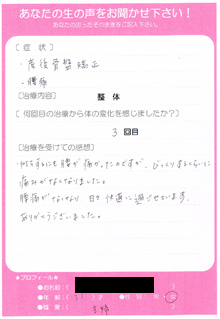 あなたの生の声をお聞かせ下さい！
あなたの思ったそのままをご記入下さい。
［ 症 状 ］
・産後骨盤矯正
・腰痛
［治療内容］ 整 体
［ 何回目の治療から体の変化を感じましたか？］
3 回目
［治療を受けての感想］
何をするにも腰が痛かったのですが、びっくりするくらいに
痛みがなくなりました。
腰痛がなくなり 日々快適に過ごせています。
ありがとうございました。
★プロフィール★
●お名前：（
●年 齢：（ 3 ）
●職 業：（